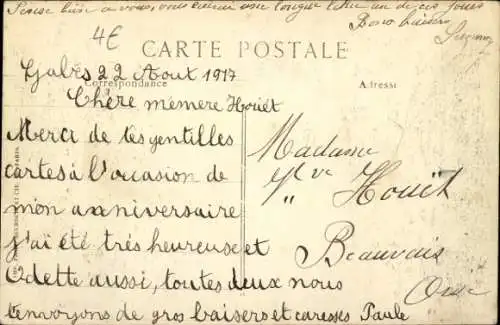 Pense bien à vous, vous écrirai une longue lettre un de ces jours
Bons baisers
Suzanne
4€
CARTE POSTALE
Gabès 22 Aout 1917
Correspondance
Adresse
Chère mémère Houët
Merci de tes gentilles
cartes à l'occasion de
mon anniversaire
j'ai été très heureuse et
Odette aussi, toutes deux nous
t'envoyons de gros baisers et caresses Paule
Madame
Vve Houët
Beauvais
Oise